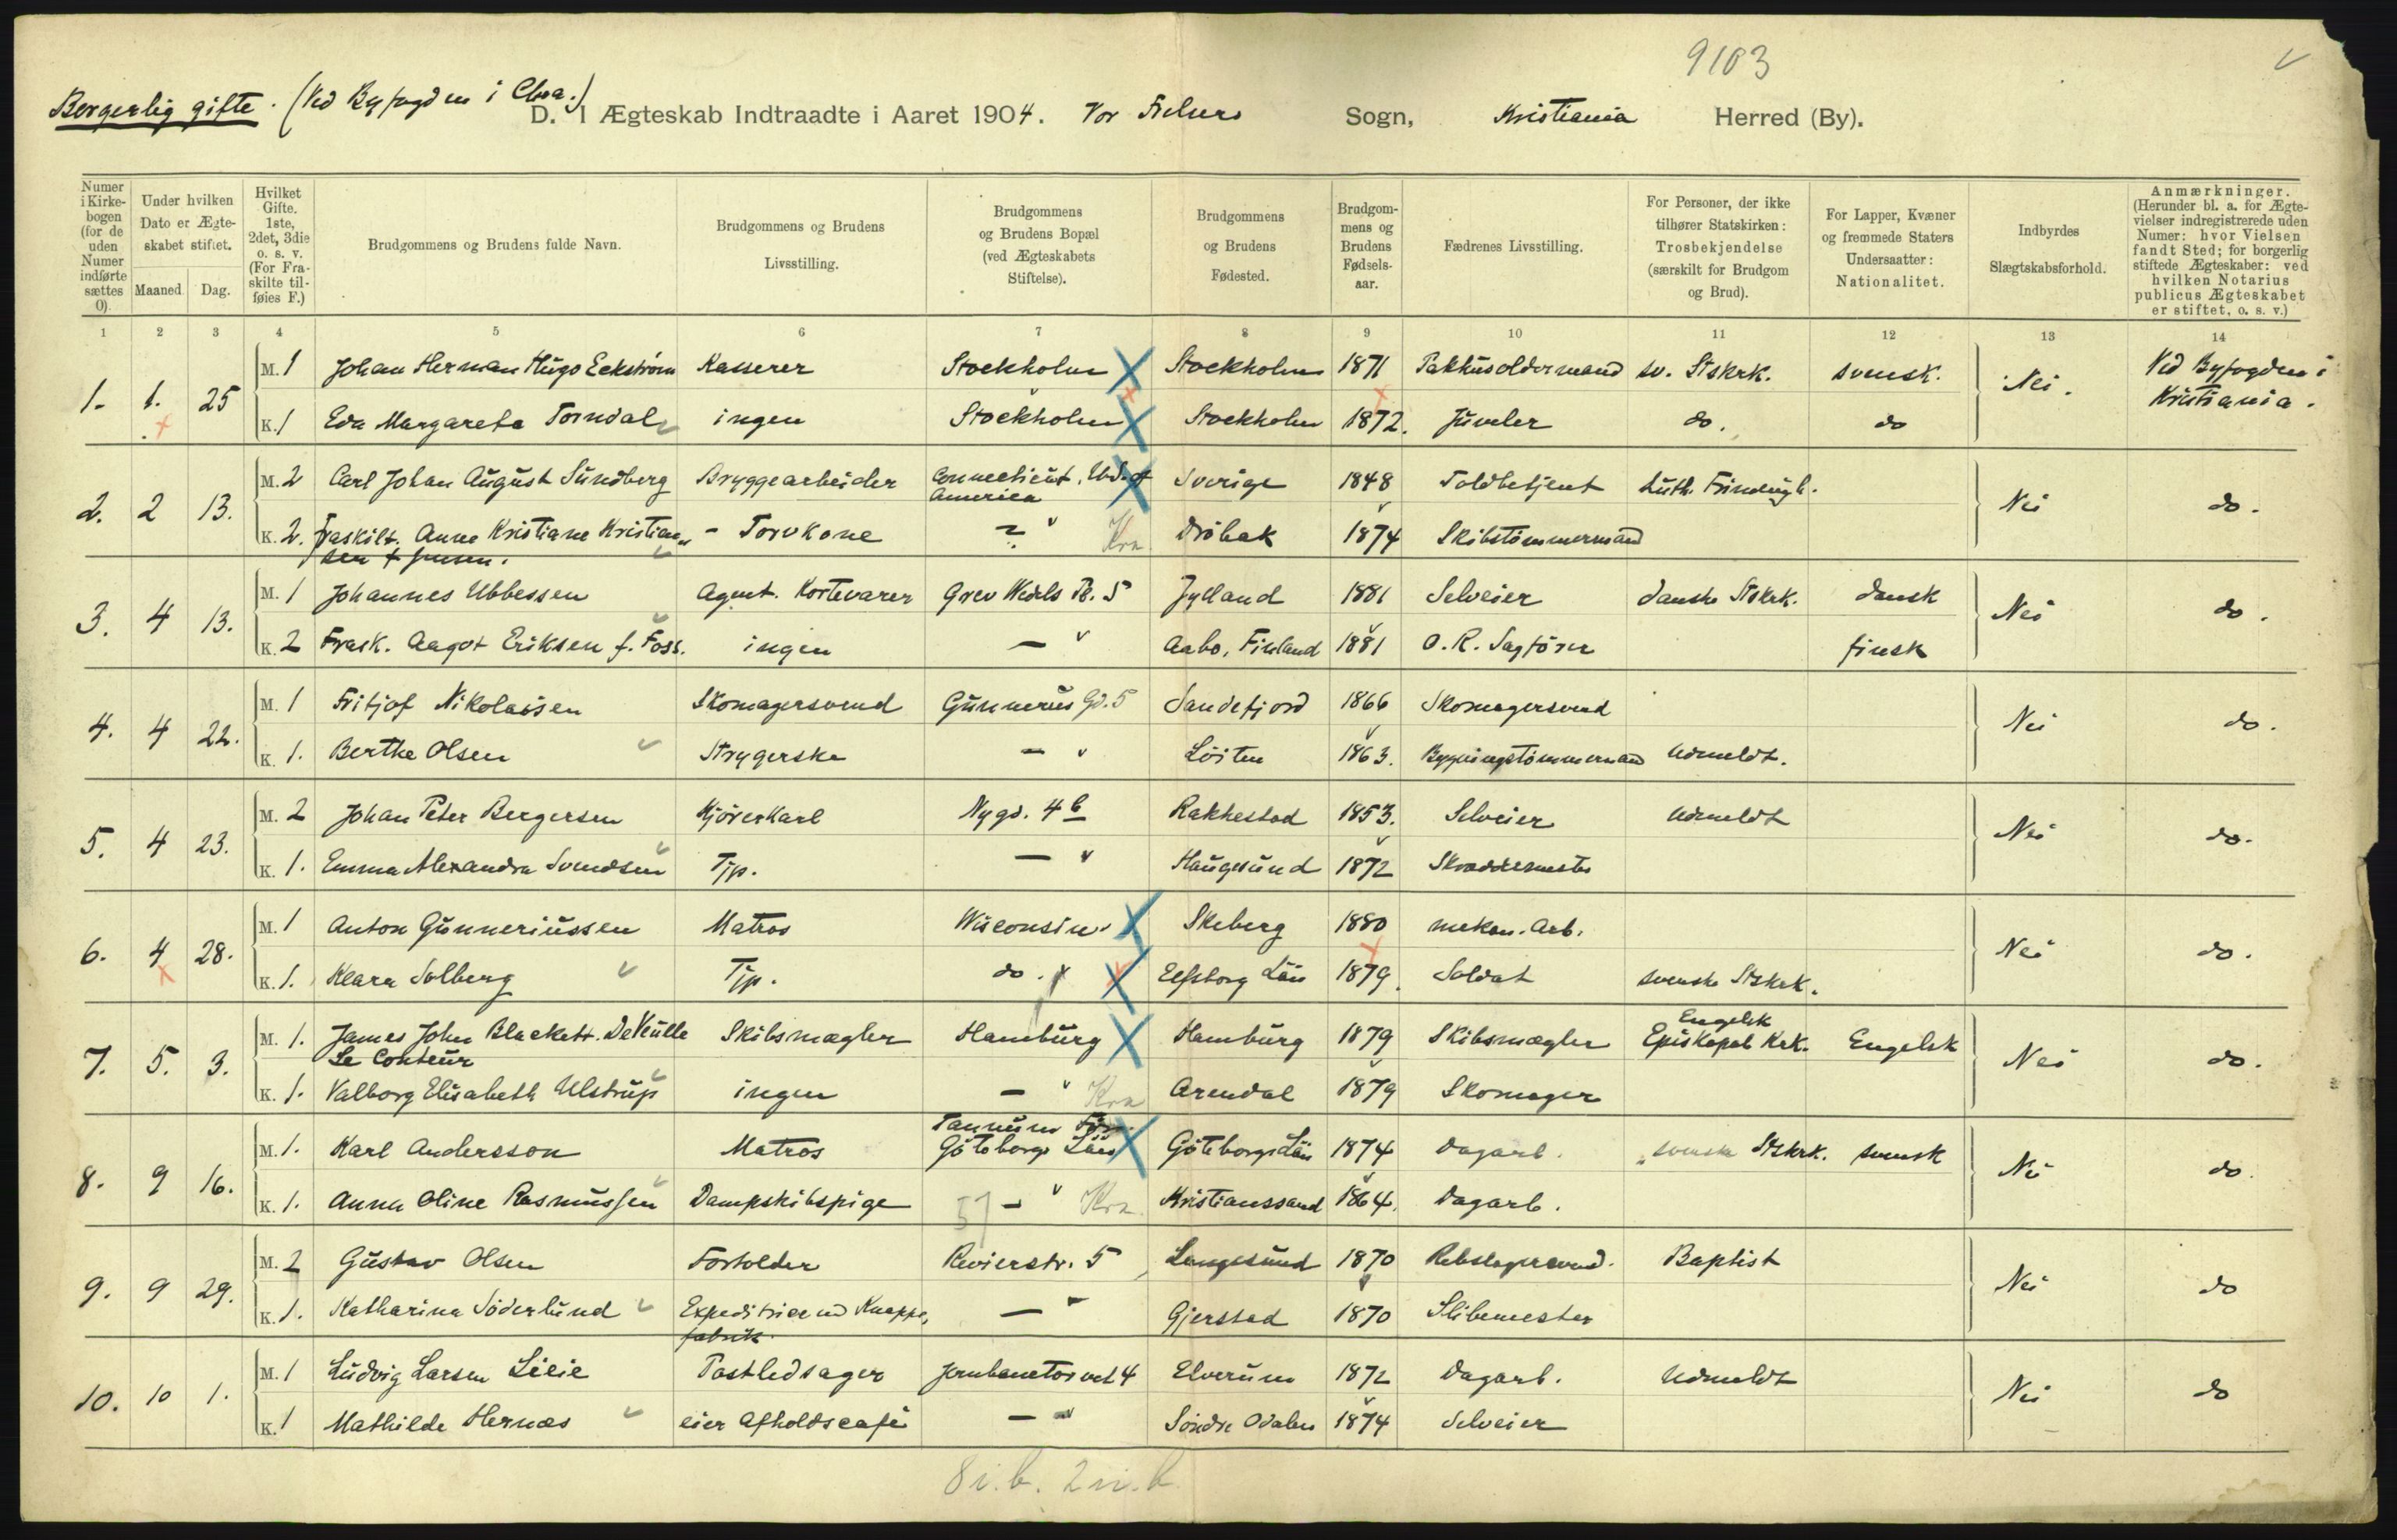 9103
Borgerlig gifte. (Ved Byfogden i Chra.)
D. I Ægteskab Indtraadte i Aaret 1904. Vor Frelsers Sogn, Kristiania Herred (By).
Numer i Kirkebogen (for de uden Numer indførte sættes 0).
Under hvilken Dato er Ægteskabet stiftet. Maaned. Dag.
Hvilket Gifte. 1ste, 2det, 3die o. s. v. (For Fraskilte tilføies F.)
Brudgommens og Brudens fulde Navn.
Brudgommens og Brudens Livsstilling.
Brudgommens og Brudens Bopæl (ved Ægteskabets Stiftelse).
Brudgommens og Brudens Fødested.
Brudgommens og Brudens Fødselsaar.
Fædrenes Livsstilling.
For Personer, der ikke tilhører Statskirken: Trosbekjendelse (særskilt for Brudgom og Brud).
For Lapper, Kvæner og fremmede Staters Undersaatter: Nationalitet.
Indbyrdes Slægtskabsforhold.
Anmærkninger. (Herunder bl. a. for Ægtevielser indregistrerede uden Numer: hvor Vielsen fandt Sted; for borgerlig stiftede Ægteskaber: ved hvilken Notarius publicus Ægteskabet er stiftet, o. s. v.)
1 2 3 4 5 6 7 8 9 10 11 12 13 14
1. 1. 25 M. 1 Johan Herman Hugo Eckström Kasserer Stockholm Stockholm 1871 Pakhusoldermand sv. Stskrk. svensk. Nei. Ved Byfogden i Kristiania.
K. 1 Eda Margareta Torndal ingen Stockholm Stockholm 1872. Juveler do. do
2. 2 13. M. 2 Carl Johan August Sundberg Bryggearbeider Connecticut, U.S. of America Sverige 1848 Toldbetjent Luth. Frimenigh. Nei do.
K. 2. Fraskilt. Anne Kristiane Kristiansen f. Jensen. - Torvkone — " Kra Drøbak 1874 Skibstømmermand
3. 4 13. M. 1 Johannes Ubbessen Agent. Kortevarer Grev Wedels Pl. 5 Jylland 1881 Selveier danske Stskrk. dansk Nei do.
K. 2 Frask. Aagot Eriksen f. Foss. ingen — " Aabo, Finland 1881 O. R. Sagfører finsk
4. 4 22. M. 1 Fritjof Nikolaisen Skomagersvend Gunnerus Gd. 5 Sandefjord 1866 Skomagersvend Nei do.
K. 1. Berthe Olsen Strygerske — " Løiten 1863. Bygningstømmermand Udmeldt.
5. 4 23. M. 2 Johan Peter Bergersen Kjørerkarl Nygd. 4 b Rakkestad 1853. Selveier Udmeldt Nei do.
K. 1. Emma Alexandra Svendsen Tjp. — " Haugesund 1872 Skræddermester
6. 4 28. M. 1 Anton Gunneriussen Matros Wisconsin. Skeberg 1880 mekan. Arb. Nei do.
K. 1. Klara Solberg Tjp. do. Elfsborg Län 1879. Soldat svenske Stskrk.
7. 5. 3. M. 1. James John Blackett DeVeulle Le Conteur Skibsmægler Hamburg Hamburg 1879 Skibsmægler Engelsk Episkopal Krk. Engelsk Nei do.
K. 1. Valborg Elisabeth Ulstrup ingen — " Kra Arendal 1879 Skomager
8. 9 16. M. 1. Karl Andersson Matros Tannum Göteborgs Län Göteborgs Län 1874 Dagarb. svenske Stskrk. svensk Nei do.
K. 1. Anna Oline Rasmussen Dampskibspige — " Kra. Kristianssand 1864. Dagarb.
9. 9 29. M. 2 Gustav Olsen Forholder Revierstr. 5 Langesund 1870 Rebslagersvend. Baptist Nei do
K. 1. Katharina Söderlund Expeditrice ved Knappefabrik — " Gjerstad 1870 Slibemester
10. 10 1. M. 1 Ludvig Larsen Lilie Postledsager Jernbanetorvet 4 Elverum 1872 Dagarb. Udmeldt Nei do
K. 1 Mathilde Hernæs eier Afholdscafé — " Søndre Odalen 1874 Selveier
8 i. b. 2 u. b.